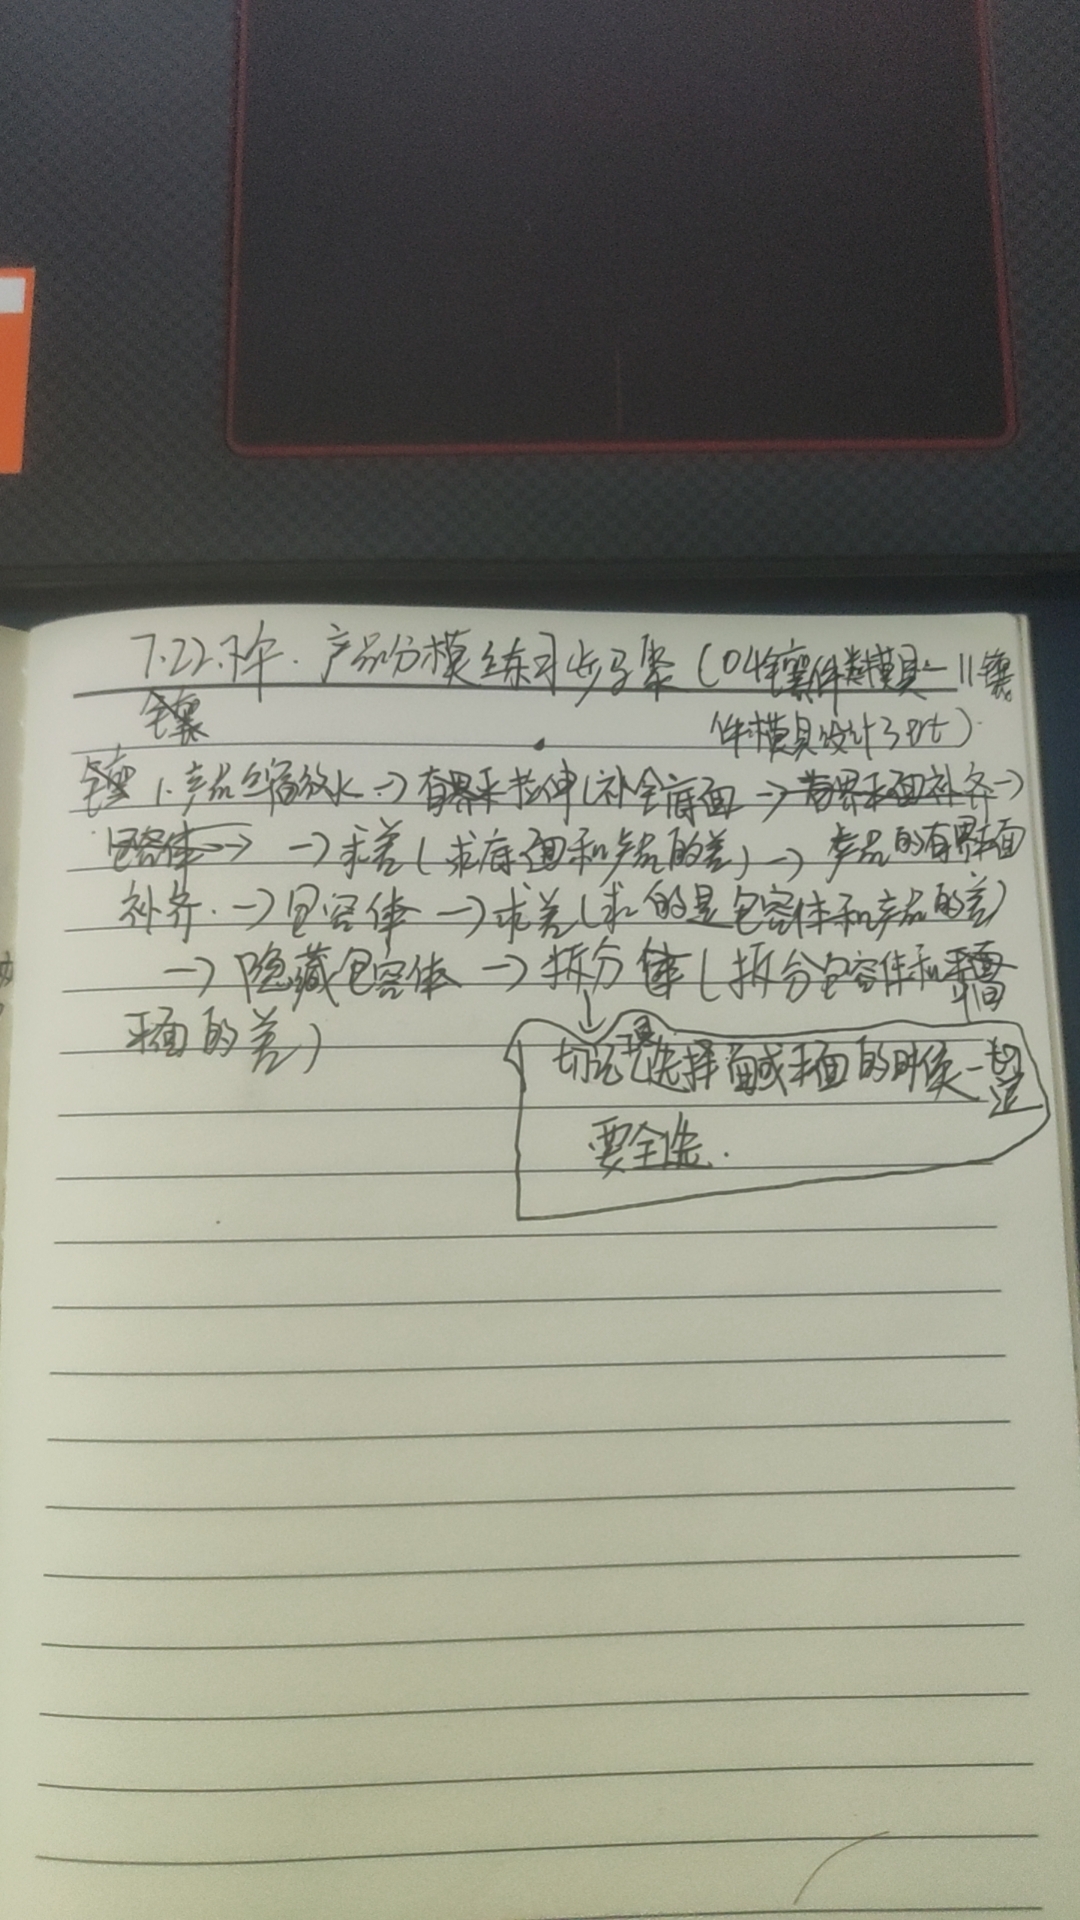 7.22.下午. 产品分模练习步骤(04镶件类模具-11镶
件模具设计3.prt).
1.产品缩放水→拉伸(补全底面→
→求差(求底面和产品的差)→产品的有界平面
补齐.→包容体→求差(求的是包容体和产品的差)
→隐藏包容体→拆分体(拆分包容件和
平面的差)
切记选择平面的时候一定
要全选.